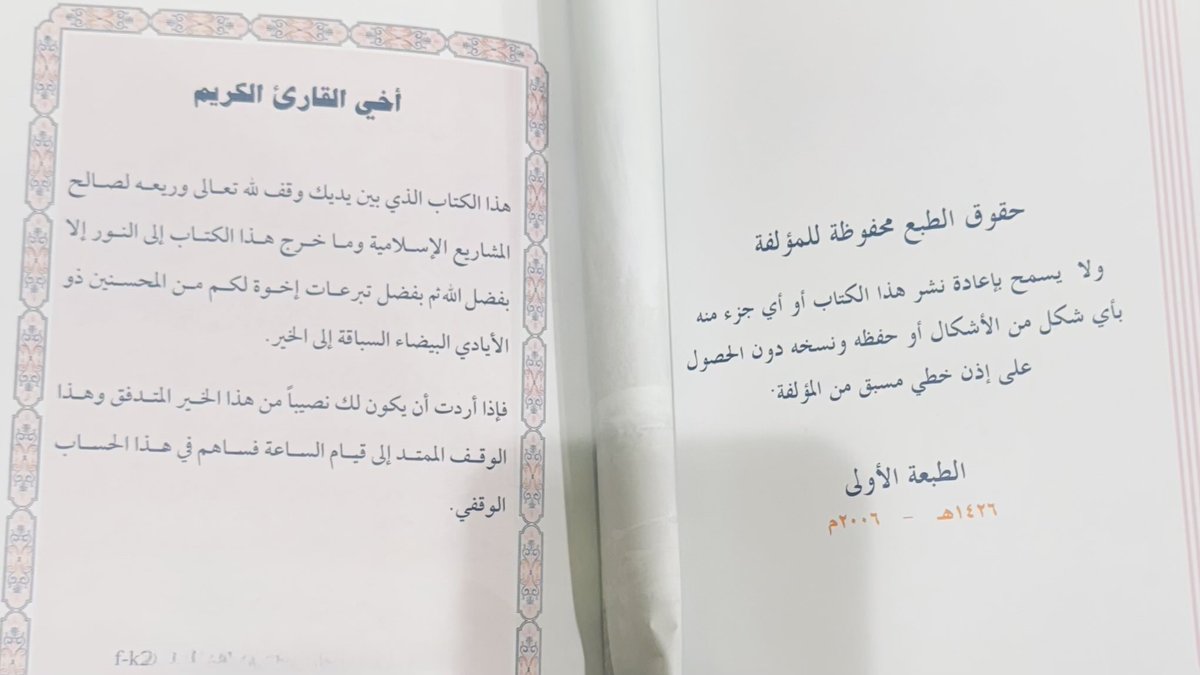 حقوق الطبع محفوظة للمؤلفة
ولا يسمح بإعادة نشر هذا الكتاب أو أي جزء منه
بأي شكل من الأشكال أو حفظه ونسخه دون الحصول
على إذن خطي مسبق من المؤلفة.
الطبعة الأولى
١٤٢٦هـ – ٢٠٠٦م
أخي القارئ الكريم
هذا الكتاب الذي بين يديك وقف لله تعالى وريعه لصالح
المشاريع الإسلامية وما خرج هذا الكتاب إلى النور إلا
بفضل الله ثم بفضل تبرعات إخوة لكم من المحسنين ذو
الأيادي البيضاء السباقة إلى الخير.
فإذا أردت أن يكون لك نصيباً من هذا الخير المتدفق وهذا
الوقف الممتد إلى قيام الساعة فساهم في هذا الحساب
الوقفي.